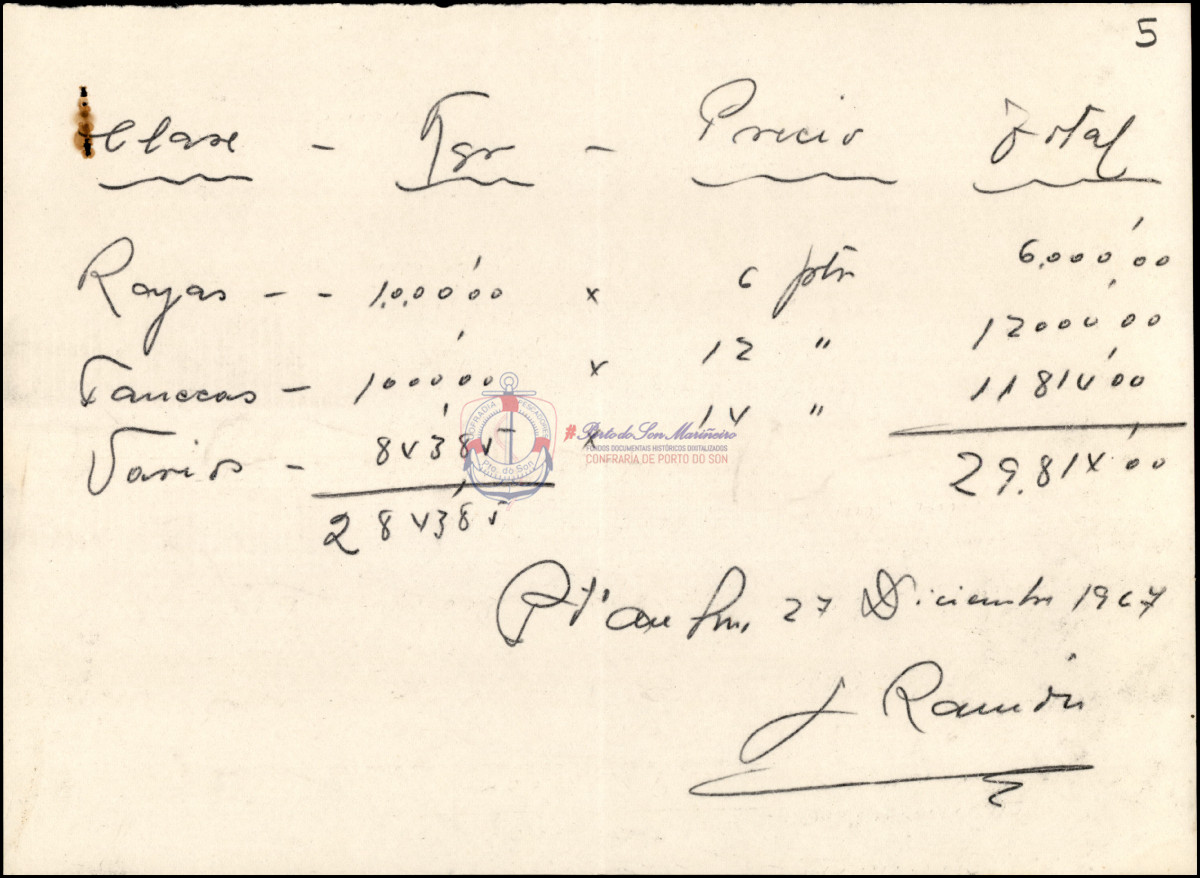 5
Clase - Kgr - Precio Total
Rayas - - 1.000'00 x 6 pts 6.000'00
Fanecas - 1000'00 x 12 " 12000'00
Varios - 843'85 x 14 " 11814'00
2843'85 29.814'00
Ptº del Son, 27 Diciembre 1967
J Ramón
COFRADIA PESCADORES
Pto. do Son
#Porto do Son Mariñeiro
FONDOS DOCUMENTAIS HISTÓRICOS DIXITALIZADOS
CONFRARIA DE PORTO DO SON